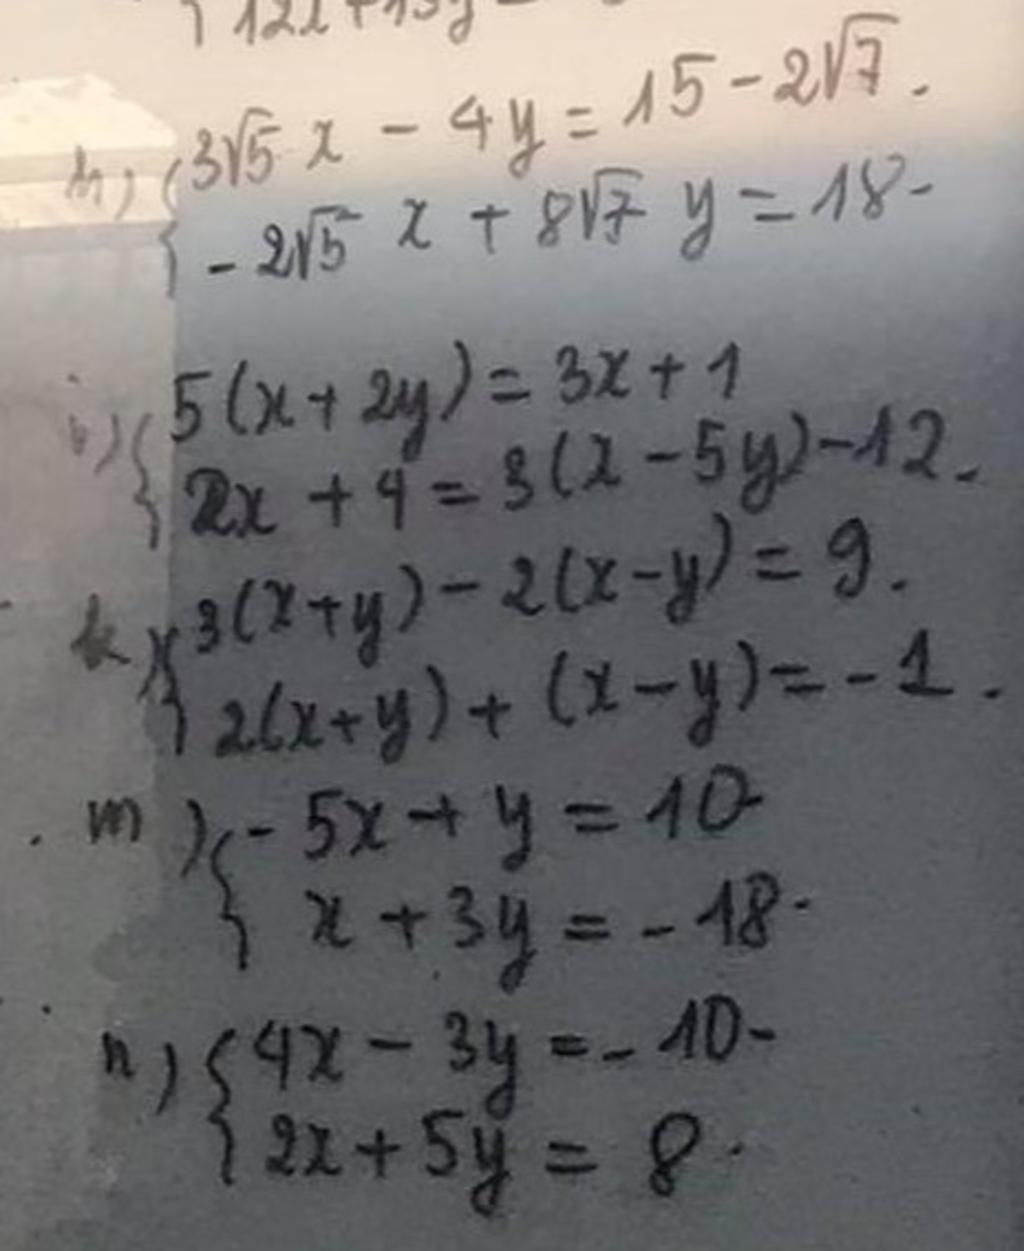 12x + 15y =
h) { 3√5 x - 4y = 15 - 2√7.
- 2√5 x + 8√7 y = 18.
i) { 5(x + 2y) = 3x + 1
2x + 4 = 3(x - 5y) - 12.
k) { 3(x+y) - 2(x-y) = 9.
2(x+y) + (x-y) = -1.
m) { - 5x + y = 10
x + 3y = - 18.
n) { 4x - 3y = - 10
2x + 5y = 8.